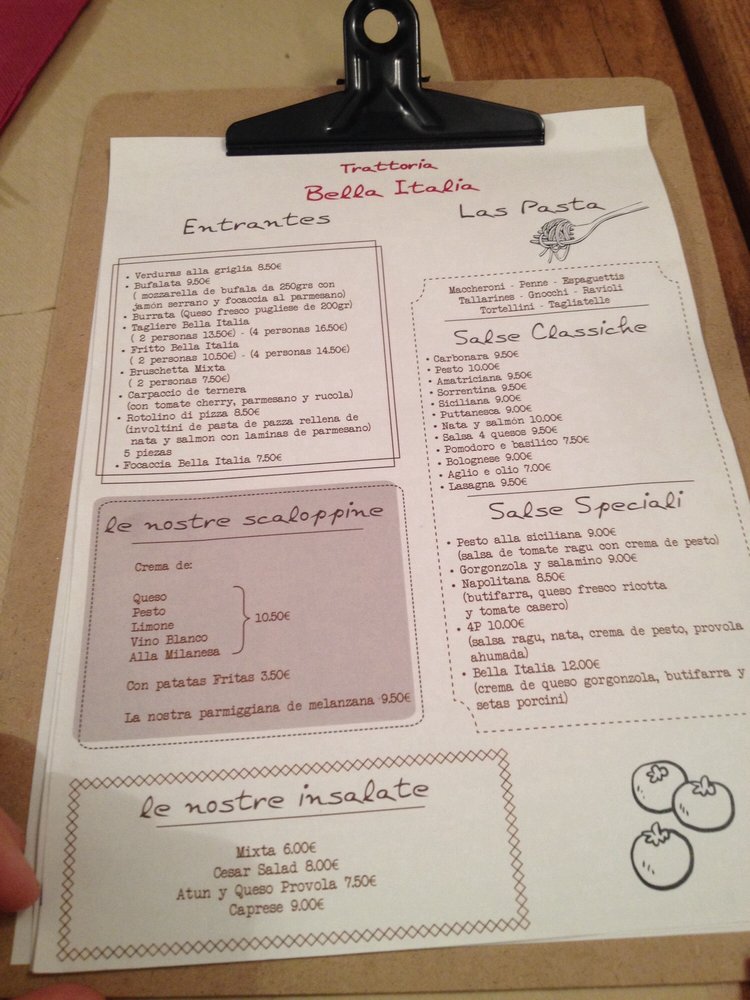 Trattoria
Bella Italia
Entrantes
• Verduras alla griglia 8.50€
• Bufalata 9.50€
( mozzarella de bufala da 250grs con
jamón serrano y focaccia al parmesano)
• Burrata (Queso fresco pugliese de 200gr)
• Tagliere Bella Italia
( 2 personas 13.50€) - (4 personas 16.50€)
• Fritto Bella Italia
( 2 personas 10.50€) - (4 personas 14.50€)
• Bruschetta Mixta
( 2 personas 7.50€)
• Carpaccio de ternera
(con tomate cherry, parmesano y rucola)
• Rotolino di pizza 8.50€
(involtini de pasta de pazza rellena de
nata y salmon con laminas de parmesano)
5 piezas
• Focaccia Bella Italia 7.50€
le nostre scaloppine
Crema de:
Queso
Pesto
Limone
Vino Blanco
Alla Milanesa
10.50€
Con patatas Fritas 3.50€
La nostra parmiggiana de melanzana 9.50€
le nostre insalate
Mixta 6.00€
Cesar Salad 8.00€
Atun y Queso Provola 7.50€
Caprese 9.00€
Las Pasta
Maccheroni - Penne - Espaguettis
Tallarines - Gnocchi - Ravioli
Tortellini - Tagliatelle
Salse Classiche
• Carbonara 9.50€
• Pesto 10.00€
• Amatriciana 9.50€
• Sorrentina 9.50€
• Siciliana 9.00€
• Puttanesca 9.00€
• Nata y salmón 10.00€
• Salsa 4 quesos 9.50€
• Pomodoro e basilico 7.50€
• Bolognese 9.00€
• Aglio e olio 7.00€
• Lasagna 9.50€
Salse Speciali
• Pesto alla siciliana 9.00€
(salsa de tomate ragu con crema de pesto)
• Gorgonzola y salamino 9.00€
• Napolitana 8.50€
(butifarra, queso fresco ricotta
y tomate casero)
• 4P 10.00€
(salsa ragu, nata, crema de pesto, provola
ahumada)
• Bella Italia 12.00€
(crema de queso gorgonzola, butifarra y
setas porcini)